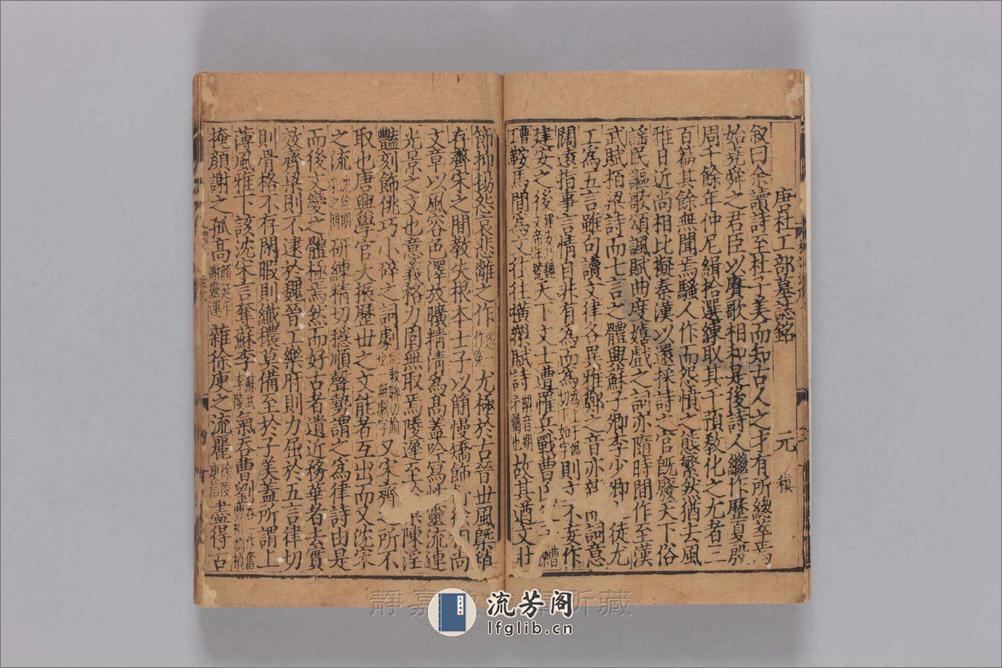 唐杜工部墓誌銘
元 稹
叙曰余讀詩至杜子美而知古人之才有所緫萃焉
始堯舜之君臣以賡歌相和是後詩人繼作歷夏殷
周千餘年仲尼緝拾選練取其干預敎化之尤者三
百篇其餘無聞焉騷人作而怨憤之態繁然猶去風
雅日近尚相比擬秦漢以還採詩之官旣廢天下俗
謡民謳歌頌諷賦曲度嬉戲之詞亦隨時間作至漢
武賦栢梁詩而七言之體興蘇子卿李少卿 徒尤
工爲五言雖句讀文律各異雅鄭之音亦 詞意
闊遠指事言情自非有爲而爲 則文不妄作
建安之後 天下文士遭罹兵戰曹
鞍馬間爲文往往橫槊賦詩 故其遒文壯
節抑揚怨哀悲離之作 尤極於古晉世風旣
存齊宋之間敎失根本士子以簡慢矯飾 相尚
文章以風容色澤放曠精淸爲高蓋吟寫性靈流連
光景之文也意義格力固無取焉陵遲至 陳淫
豔刻飾佻巧小碎之詞劇 又宋齊之所不
取也唐興學官大振歷世之文能者互出而又沈宋
之流 研練精切穩順聲勢謂之爲律詩由是
而後文變之體極焉然而好古者遺近務華者去實
效齊梁則不逮於魏晉工樂府則力屈於五言律切
則骨格不存閑暇則纎穠莫備至於子美蓋所謂上
薄風雅下該沈宋言奪蘇李 氣呑曹劉
掩顔謝之孤高 雜徐庾之流麗 盡得古
流芳阁
lfglib.cn